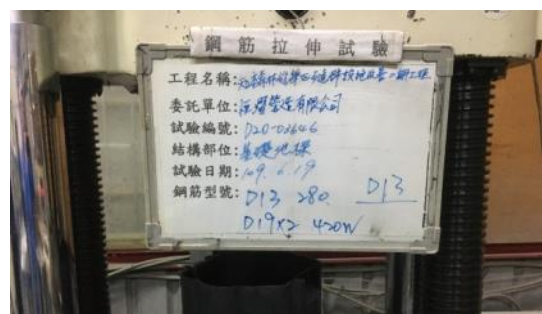 鋼筋拉伸試驗
工程名稱:
委託單位: 營造有限公司
試驗編號: D20-03646
結構部位: 基礎地樑
試驗日期: 109. 6. 19
鋼筋型號: D13 280 D13
D19x2 420W